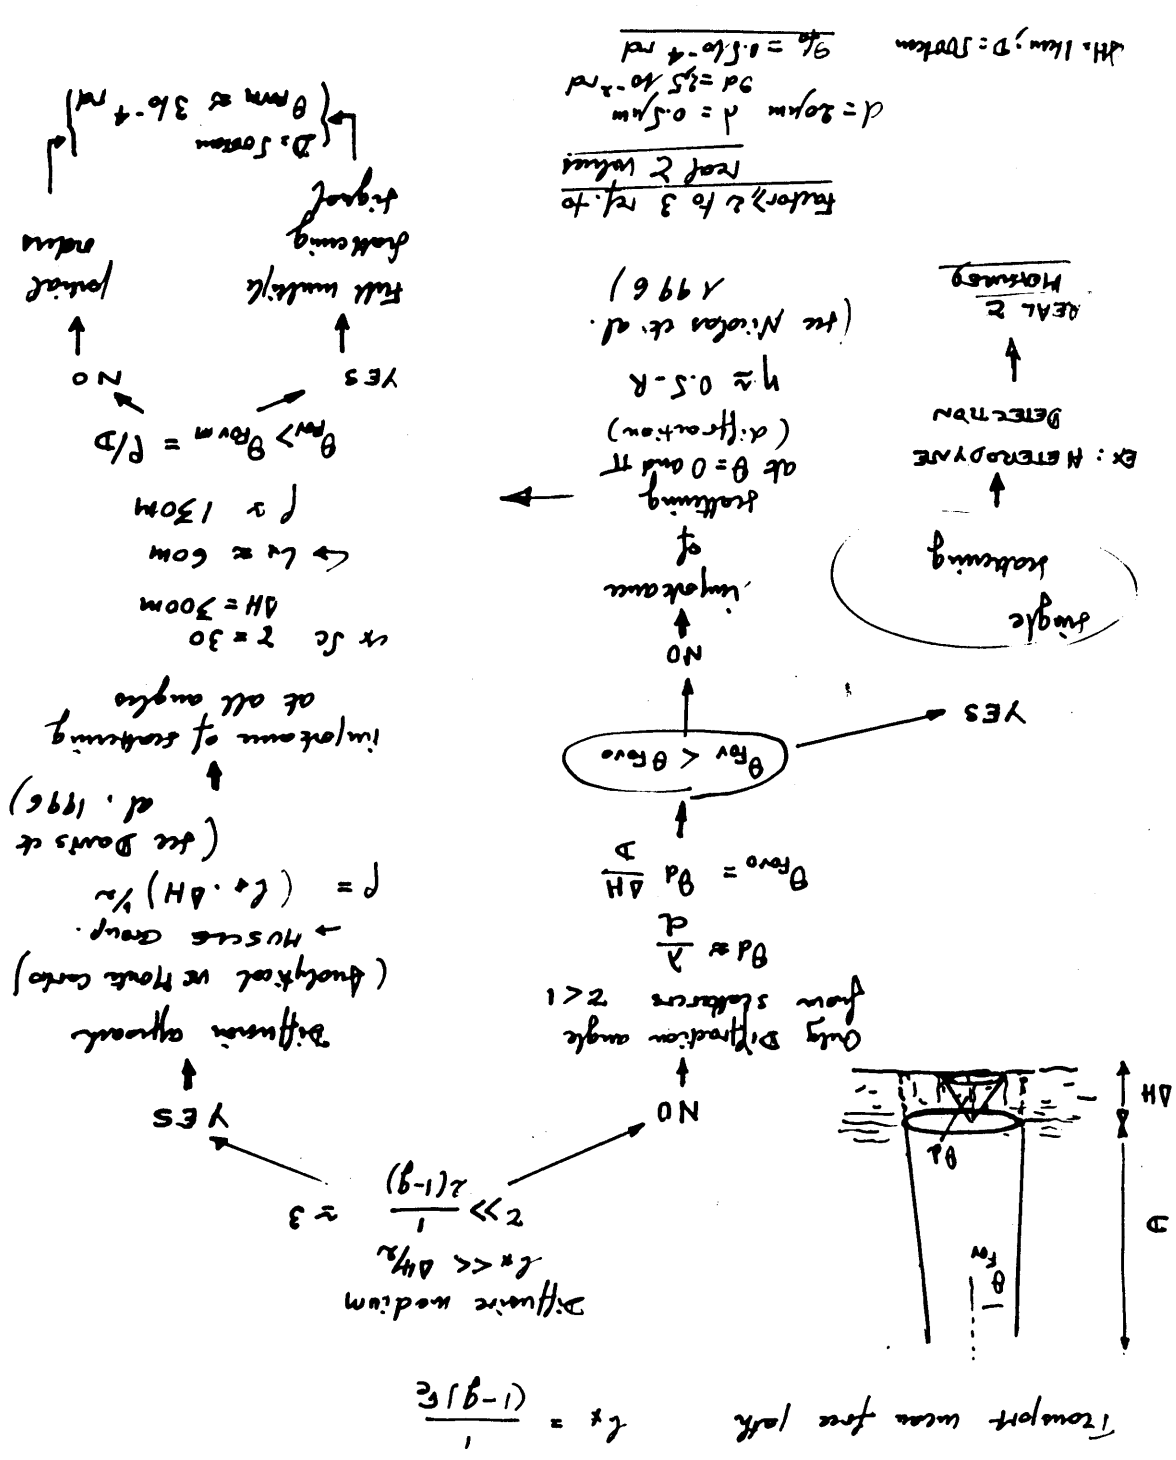 Transport mean free path l* = 1/(1-g)σe
Diffusive medium
l* << ΔH/2
τ >> 1/2(1-g) ≈ 3
θFOV
D
θd
ΔH
NO
YES
Only Diffraction angle
from scatterers τ<1
θd ≈ λ/d
θFOVo = θd ΔH/D
θFOV < θFOVo
YES
single
scattering
EX: HETERODYNE
DETECTION
REAL Σ
MEASURED
NO
importance
of
scattering
at θ=0 and π
(diffraction)
η ≈ 0.5-R
(see Nicolas et al.
1996)
Factor ≥ 2 to 3 ref. to
real Σ values
d=20μm λ = 0.5μm
θd = 2,5 10-2 rd
ΔH=1km; D=500km θfo = 0.5 10-4 rd
Diffusion approach
(Analytical vs Monte Carlo)
→ MUSCLE Group.
ρ = (l* · ΔH)^1/2
(see Davis et
al. 1996)
importance of scattering
at all angles
ex Sc τ = 30
ΔH = 300m
↳ l* ≈ 60m
ρ ≈ 130m
θFOV > θFOVm = ρ/D
YES
NO
Full multiple
scattering
signal
partial
orders
D=500km
θFOVm ≈ 3 10-4 rd